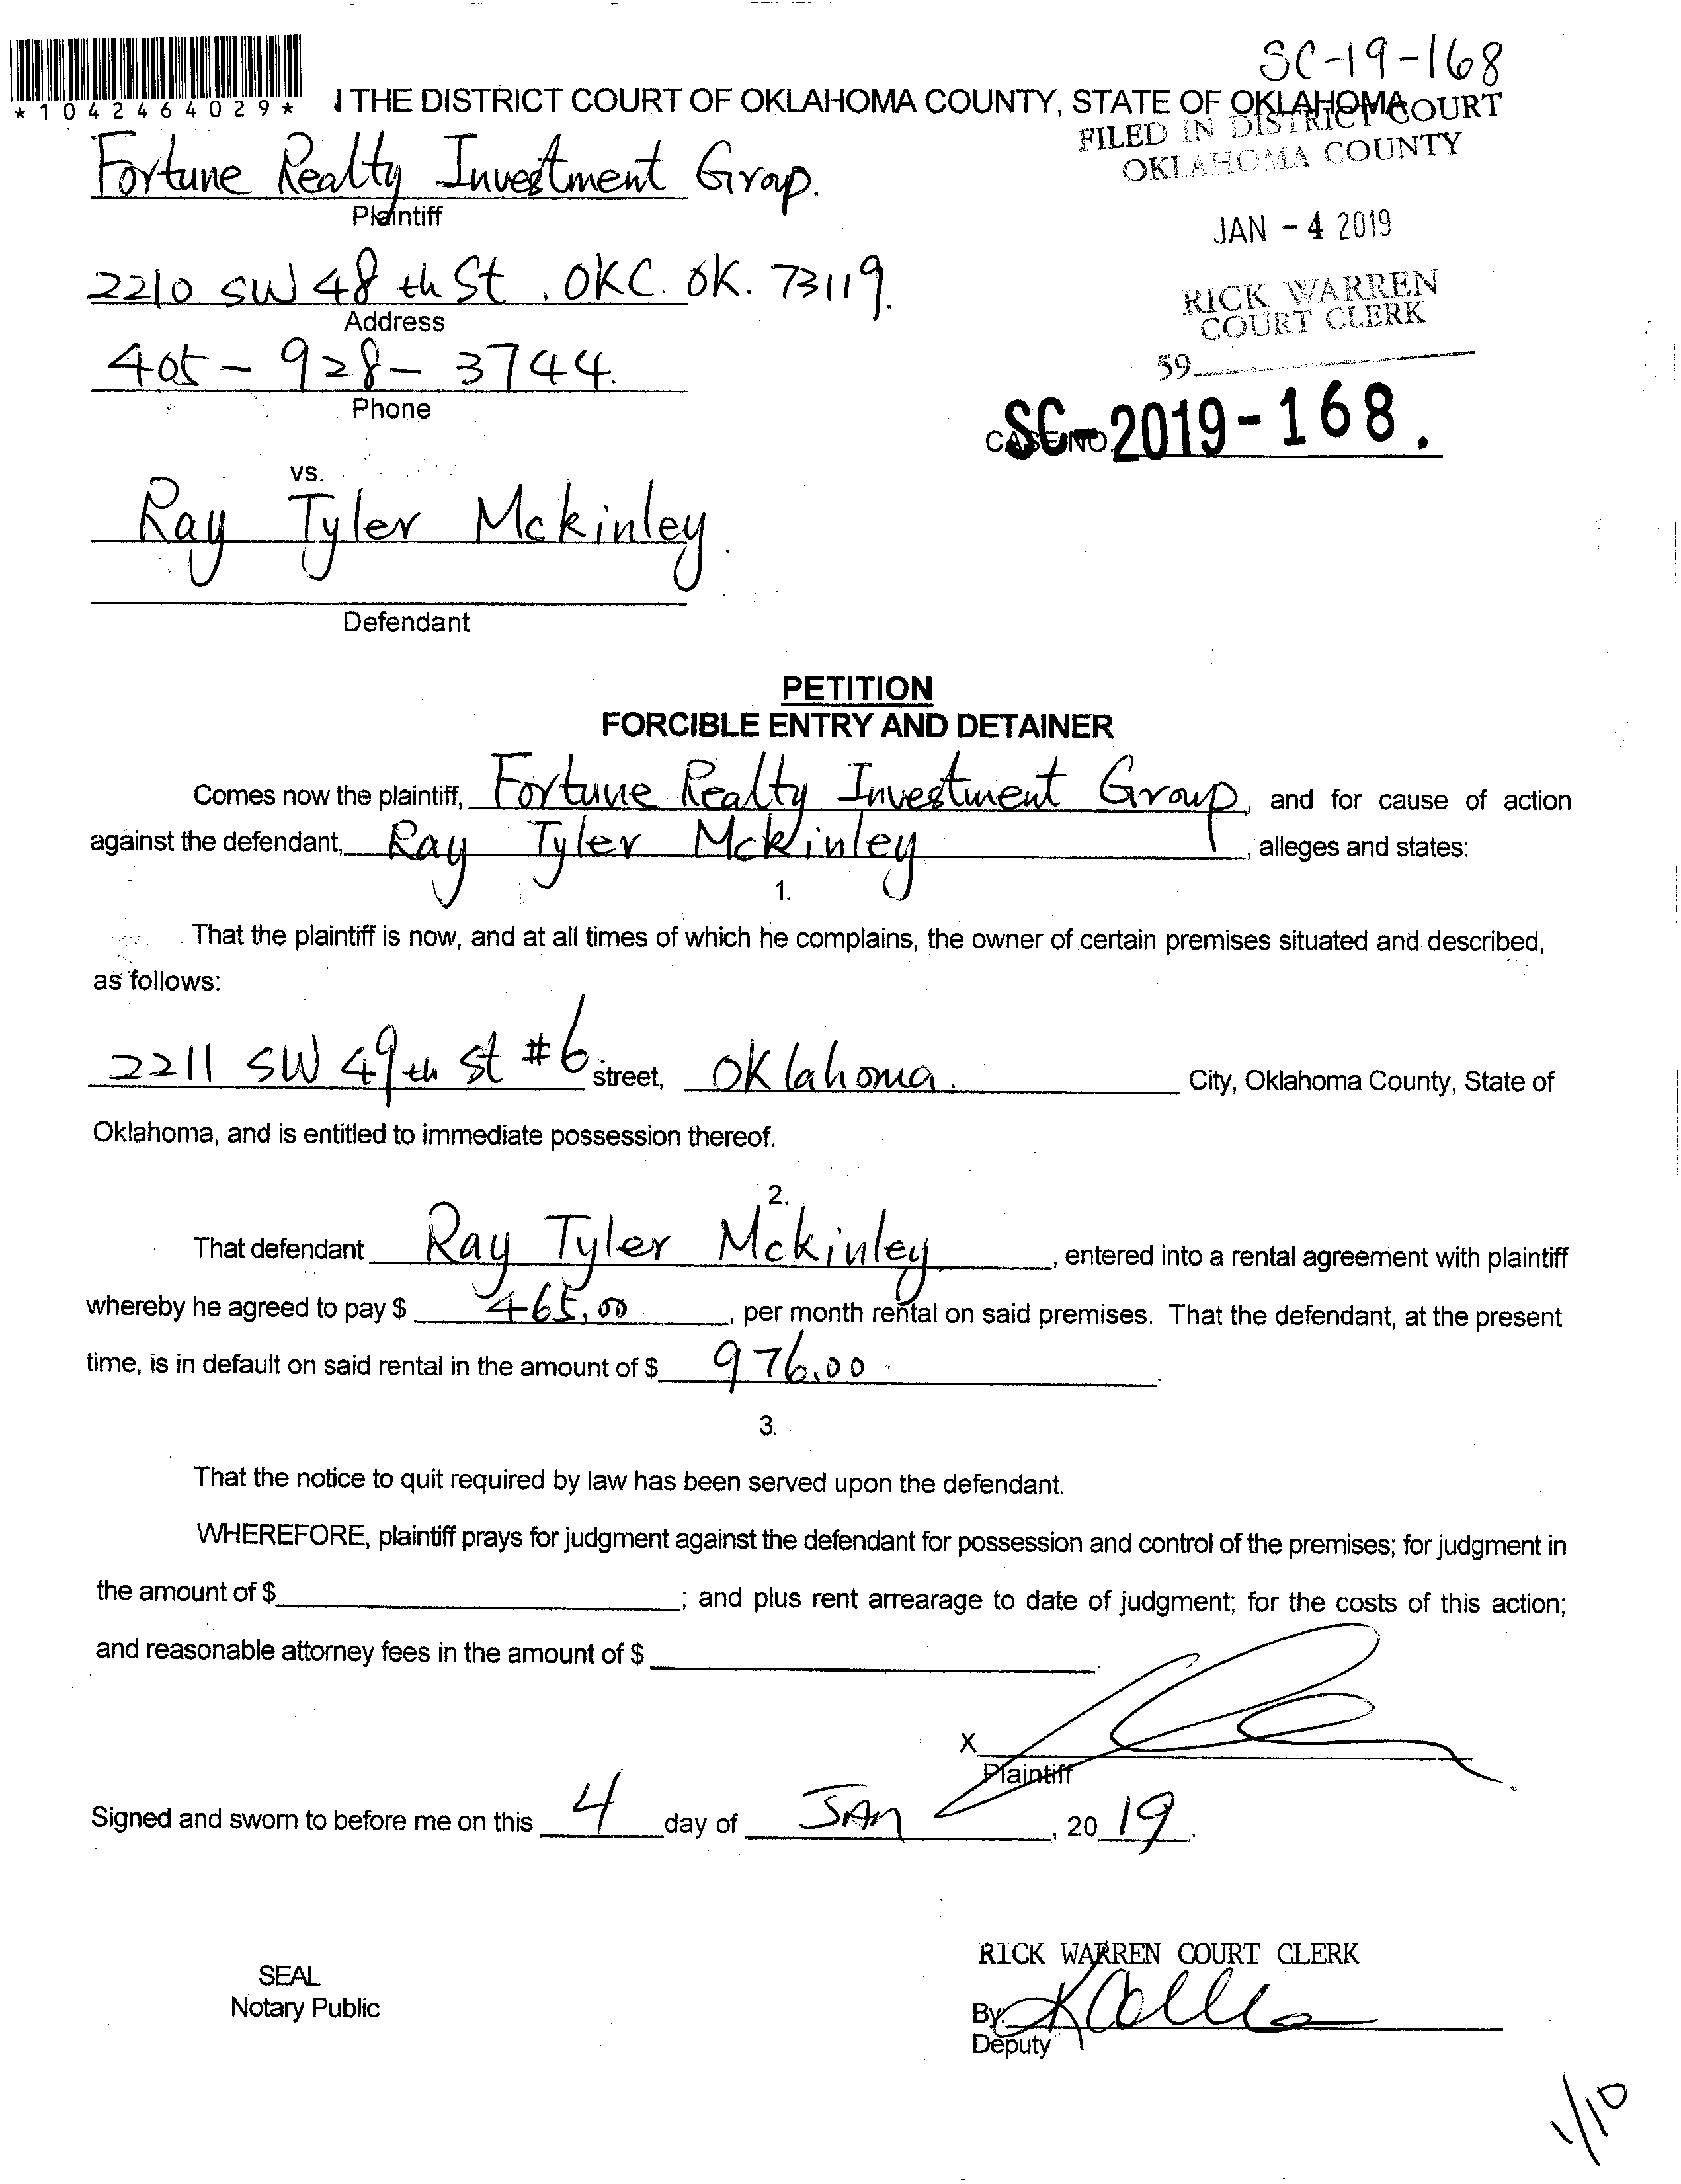 SC-19-168
*1042464029*
THE DISTRICT COURT OF OKLAHOMA COUNTY, STATE OF OKLAHOMA
FILED IN DISTRICT COURT
OKLAHOMA COUNTY
Fortune Realty Investment Group.
Plaintiff
JAN - 4 2019
2210 SW 48th St, OKC. OK. 73119.
Address
RICK WARREN
COURT CLERK
405-928-3744.
Phone
59
CASE NO. SC-2019-168.
vs.
Ray Tyler Mckinley.
Defendant
PETITION
FORCIBLE ENTRY AND DETAINER
Comes now the plaintiff, Fortune Realty Investment Group, and for cause of action
against the defendant, Ray Tyler Mckinley, alleges and states:
1.
That the plaintiff is now, and at all times of which he complains, the owner of certain premises situated and described,
as follows:
2211 SW 49th St #6 street, Oklahoma. City, Oklahoma County, State of
Oklahoma, and is entitled to immediate possession thereof.
2.
That defendant Ray Tyler Mckinley, entered into a rental agreement with plaintiff
whereby he agreed to pay $ 465.00, per month rental on said premises. That the defendant, at the present
time, is in default on said rental in the amount of $ 976.00.
3.
That the notice to quit required by law has been served upon the defendant.
WHEREFORE, plaintiff prays for judgment against the defendant for possession and control of the premises; for judgment in
the amount of $ ; and plus rent arrearage to date of judgment; for the costs of this action;
and reasonable attorney fees in the amount of $ .
X
Plaintiff
Signed and sworn to before me on this 4 day of JAn, 2019.
RICK WARREN COURT CLERK
SEAL
Notary Public
By:
Deputy
1/10